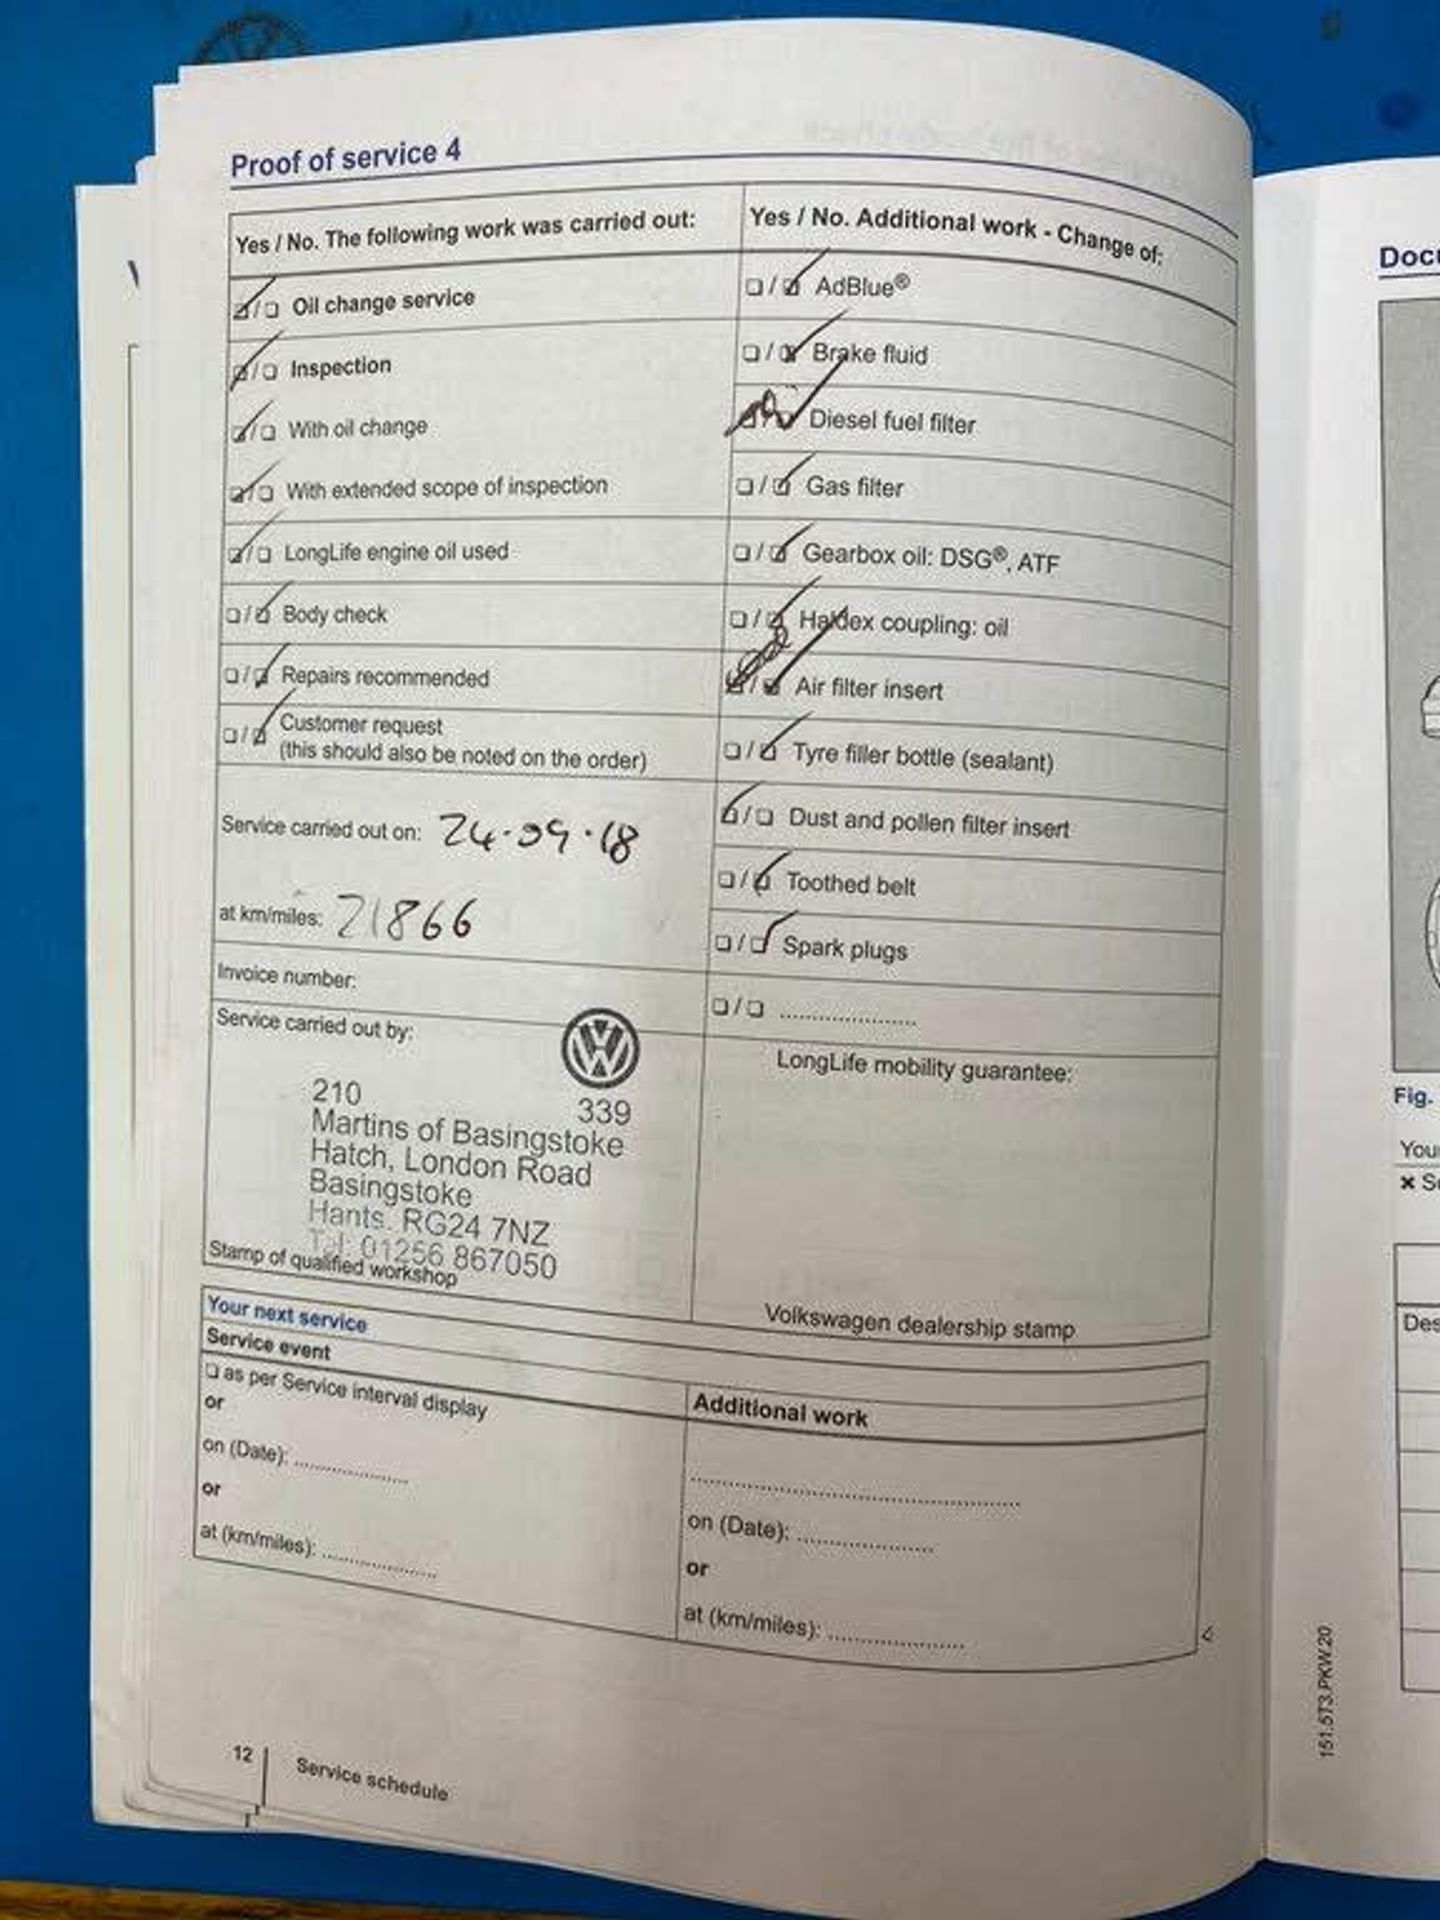 Proof of service 4
Yes / No. The following work was carried out:
Oil change service
Inspection
With oil change
With extended scope of inspection
LongLife engine oil used
Body check
Repairs recommended
Customer request
(this should also be noted on the order)
Service carried out on: 24.09.18
at km/miles: 21866
Invoice number:
Service carried out by:
210
339
Martins of Basingstoke
Hatch, London Road
Basingstoke
Hants. RG24 7NZ
Tel: 01256 867050
Stamp of qualified workshop
Yes / No. Additional work - Change of:
AdBlue®
Brake fluid
Diesel fuel filter
Gas filter
Gearbox oil: DSG®, ATF
Haldex coupling: oil
Air filter insert
Tyre filler bottle (sealant)
Dust and pollen filter insert
Toothed belt
Spark plugs
....................
LongLife mobility guarantee:
Volkswagen dealership stamp
Your next service
Service event
as per Service interval display
or
on (Date): ................
or
at (km/miles): ................
Additional work
................................................
on (Date): ....................
or
at (km/miles): ....................
12
Service schedule
Fig.
151.5T3.PKW.20